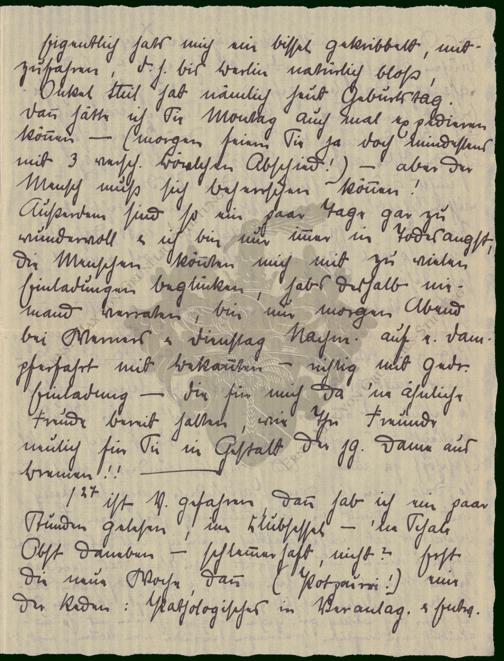 Eigentlich hats mich ein bissel gekribbelt, mit-
zufahren, d. h. bis Berlin natürlich bloß,
Onkel hat nämlich heut Geburtstag.
Dañ hätte ich Sie Montag auch mal expedieren
köñen — (morgen feiern Sie ja doch mindestens
mit 3 versch. Abschied!) — aber der
Mensch muß sich beherrschen köñen!
Außerdem sind so ein paar Tage gar zu
wundervoll & ich bin nur im̄er in Todesangst,
die Menschen köñten mich mit zu vielen
Einladungen beglücken, habs deshalb nie-
mand verraten, bin nur morgen Abend
bei Werners & Dienstag Nachm. auf e. Dam-
pferfahrt mit Bekañten — richtig mit gedr.
Einladung — die für mich da 'ne ähnliche
Freude bereit halten, wie Ihre Freunde
neulich für Sie in Gestalt der jg. Dame aus
Bremen!!!
1/2 7 ist V. gefahren, dañ hab ich ein paar
Stunden gelesen, im Klubsessel — 'ne Schale
Obst daneben — schlem̄erhaft, nicht? Erst
die neue Woche, dañ (Potpourri!) eine
der Reden: Pathologisches in Veranlag. & Entw.